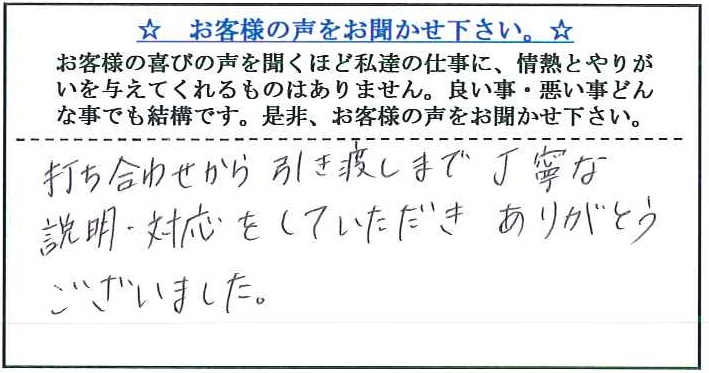 ☆　お客様の声をお聞かせ下さい。☆
お客様の喜びの声を聞くほど私達の仕事に、情熱とやりが
いを与えてくれるものはありません。良い事・悪い事どん
な事でも結構です。是非、お客様の声をお聞かせ下さい。
打ち合わせから 引き渡しまで 丁寧な
説明・対応をしていただき ありがとう
ございました。